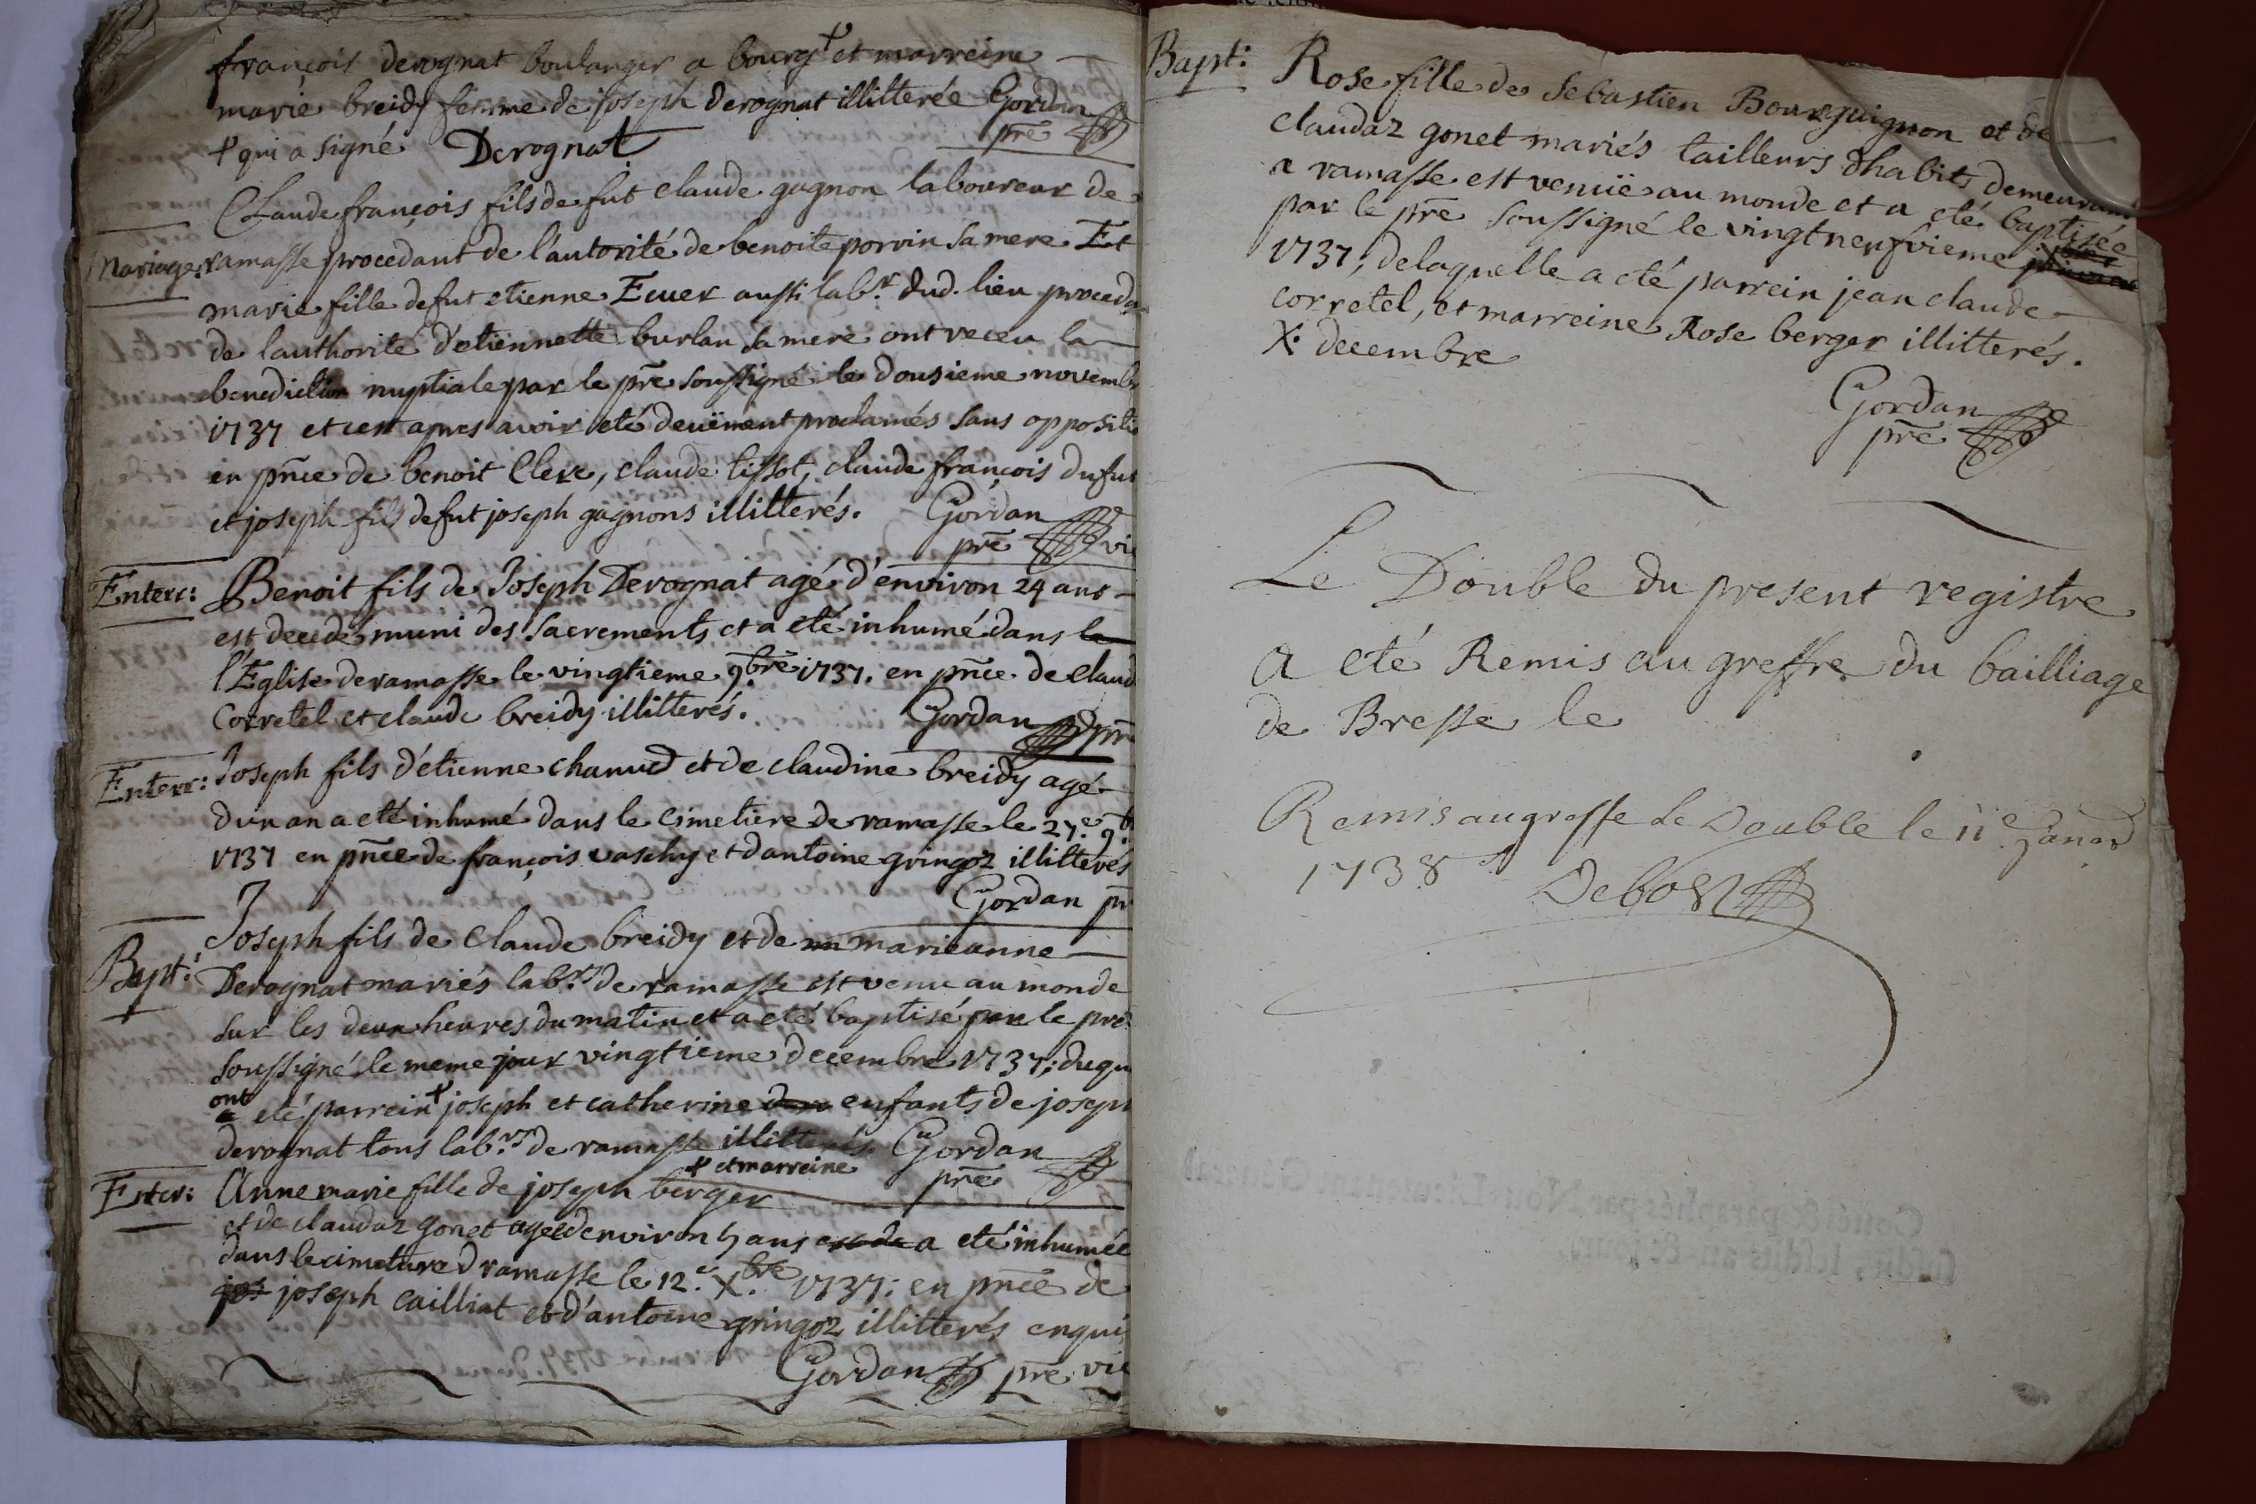 françois derognat boulanger a bourg + et marreine
marie breidy femme de joseph derognat illitterée Gordan
+ qui a signé Derognat prē
Claude françois fils de fut claude gagnon laboureur de
Mariage: ramasse procedant de l'autorité de benoite porvin sa mere Et
marie fille de fut etienne Ecuer aussi labr. dud. lieu proceda
de lauthorité d'etiennette burlan sa mere ont receu la
benediction nuptiale par le prē soussigné le dousieme novembr
1737 et ce apres avoir eté deuëment proclamés sans oppositio
en pnce de benoit Clerc, claude tissot, claude françois du fut
et joseph fils de fut joseph gagnons illitterés. Gordan
prē vic
Enterr: Benoit fils de Joseph Derognat agé d'environ 24 ans
est decedé muni des sacrements et a eté inhumé dans le
l'Eglise de ramasse le vingtieme 9.bre 1737. en pnce de Claud
Corretel et claude breidy illitterés. Gordan prē
Enterr: Joseph fils d'etienne chanud et de claudine breidy agé
dun an a eté inhumé dans le cimetiere de ramasse le 27.e 9.b
1737 en pnce de françois vaschy et dantoine gringoz illitterés
Gordan pr
Bapt: Joseph fils de Claude breidy et de m marieanne
Derognat mariés labrs. de ramasse est venu au monde
sur les deux heures du matin et a eté baptisé par le prē
soussigné le meme jour vingtieme decembre 1737; duqu
ont
a eté parrein + joseph et catherine enfants de joseph
derognat tous labrs. de ramasse illitterés. Gordan
+ et marreine prē
Enter: Anne marie fille de joseph berger
et de claudaz gonet agée denviron 5 ans est de a eté inhumée
dans le cimetiere d ramasse le 12.e X.bre 1737: en pnce de
jos joseph cailliat et d'antoine gringoz illitterés enquis
Gordan prē vic
Bapt: Rose fille de Sebastien Bourguignon et de
claudaz gonet mariés tailleurs dhabits demeurant
a ramasse est venuë au monde et a eté baptisée
par le prē soussigné le vingt neufvieme
1737, de laquelle a eté parrein jean claude
corretel, et marreine Rose berger illitterés.
X. decembre
Gordan
prē
Le Double du present registre
a eté Remis au greffe du bailliage
de Bresse le
Remis au greffe le Double le 11e Janer
1738 Debost
Cotté & paraphé par Nous Lieutenant General
susdit, lesdits an & jour.